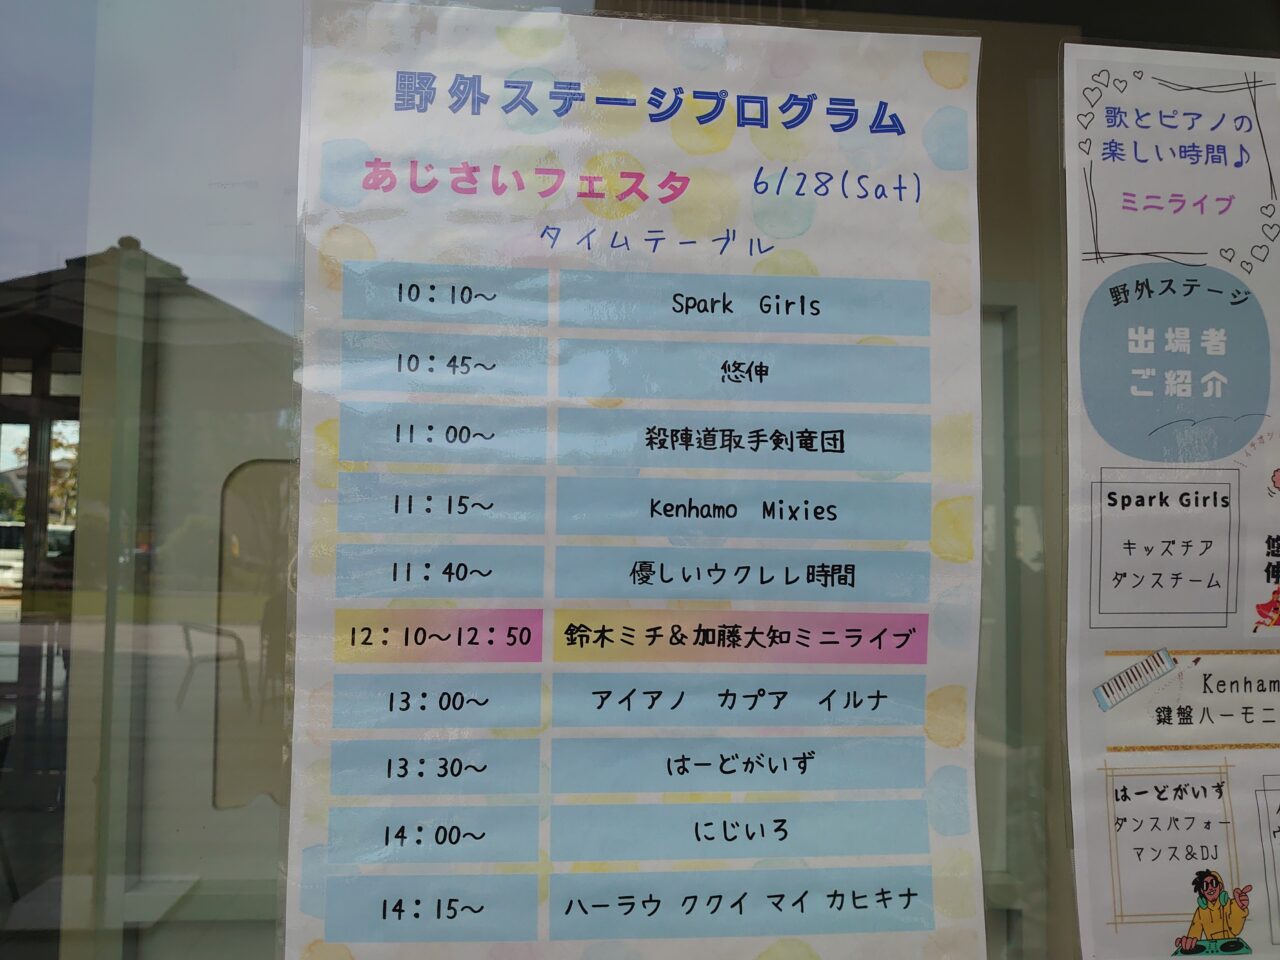 野外ステージプログラム
あじさいフェスタ 6/28(Sat)
タイムテーブル
10：10～ Spark Girls
10：45～ 悠伸
11：00～ 殺陣道取手剣竜団
11：15～ Kenhamo Mixies
11：40～ 優しいウクレレ時間
12：10～12：50 鈴木ミチ＆加藤大知ミニライブ
13：00～ アイアノ カプア イルナ
13：30～ はーどがいず
14：00～ にじいろ
14：15～ ハーラウ ククイ マイ カヒキナ
歌とピアノの
楽しい時間♪
ミニライブ
野外ステージ
出場者
ご紹介
Spark Girls
キッズチア
ダンスチーム
悠
伸
Kenham
鍵盤ハーモニ
はーどがいず
ダンスパフォー
マンス＆DJ